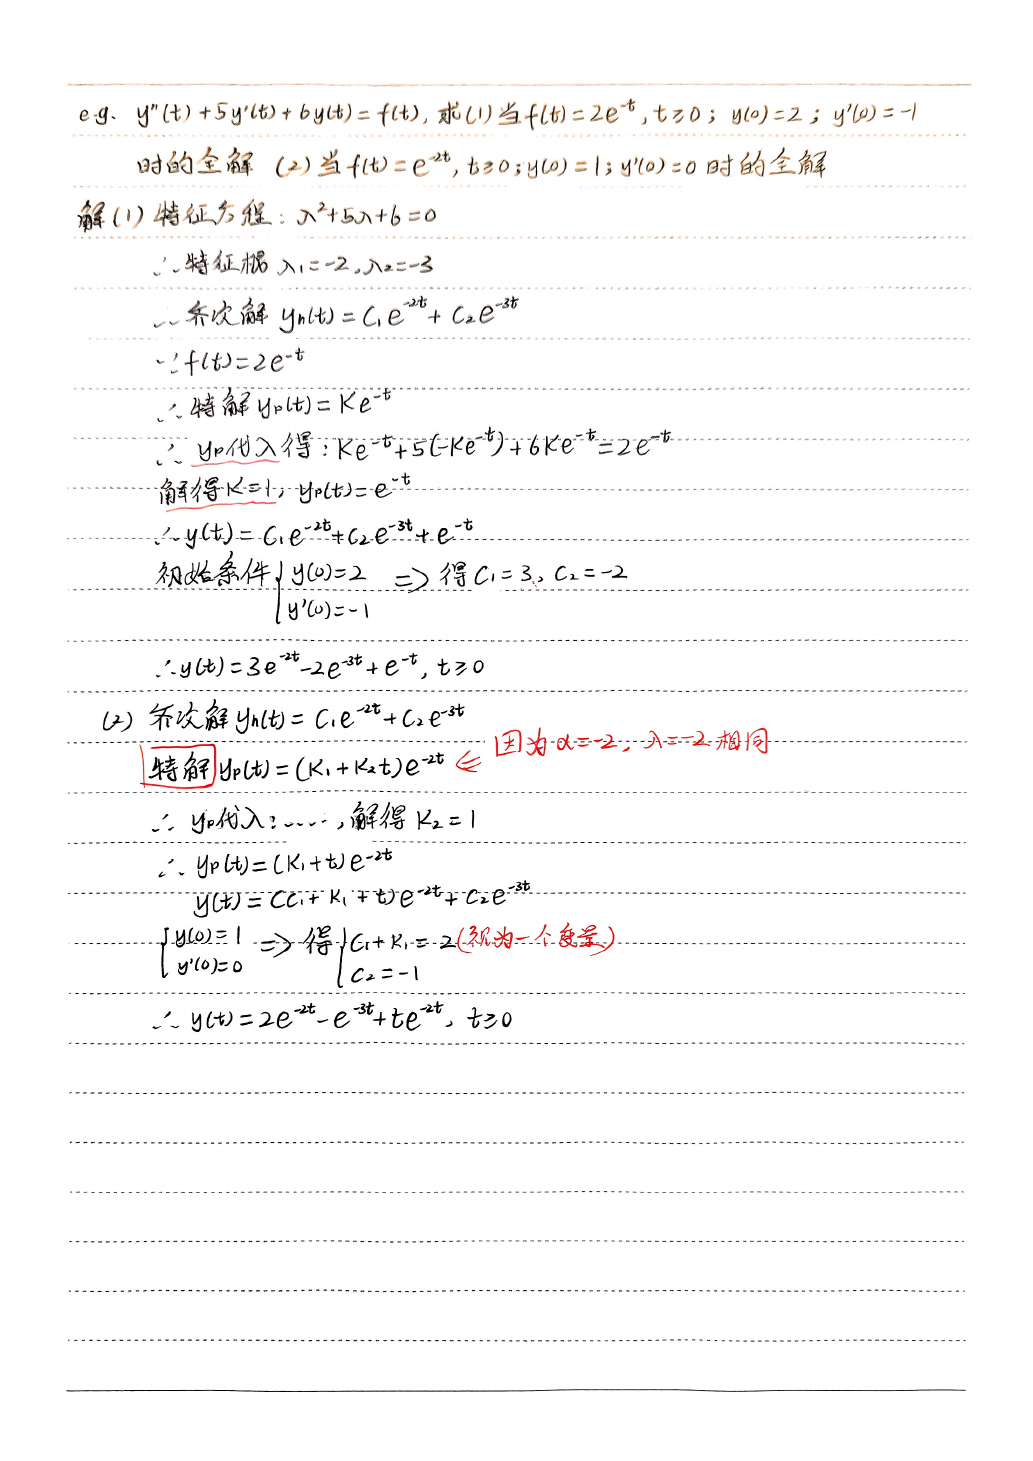 e.g. y″(t)+5y′(t)+6y(t)=f(t), 求(1)当f(t)=2e⁻ᵗ, t≥0; y(0)=2; y′(0)=-1
时的全解 (2)当f(t)=e⁻²ᵗ, t≥0; y(0)=1; y′(0)=0时的全解
解(1) 特征方程: λ²+5λ+6=0
∴特征根 λ₁=-2, λ₂=-3
∴齐次解 yh(t)=C₁e⁻²ᵗ+C₂e⁻³ᵗ
∵f(t)=2e⁻ᵗ
∴特解yp(t)=Ke⁻ᵗ
∴yp代入得: Ke⁻ᵗ+5(-Ke⁻ᵗ)+6Ke⁻ᵗ=2e⁻ᵗ
解得K=1, yp(t)=e⁻ᵗ
∴y(t)=C₁e⁻²ᵗ+C₂e⁻³ᵗ+e⁻ᵗ
初始条件{y(0)=2 => 得C₁=3, C₂=-2
y′(0)=-1
∴y(t)=3e⁻²ᵗ-2e⁻³ᵗ+e⁻ᵗ, t≥0
(2) 齐次解yh(t)=C₁e⁻²ᵗ+C₂e⁻³ᵗ
特解yp(t)=(K₁+K₂t)e⁻²ᵗ ⇐ 因为α=-2, λ=-2相同
∴yp代入:……, 解得K₂=1
∴yp(t)=(K₁+t)e⁻²ᵗ
y(t)=(C₁+K₁+t)e⁻²ᵗ+C₂e⁻³ᵗ
{y(0)=1 => 得{C₁+K₁=2(视为一个变量)
y′(0)=0 C₂=-1
∴y(t)=2e⁻²ᵗ-e⁻³ᵗ+te⁻²ᵗ, t≥0